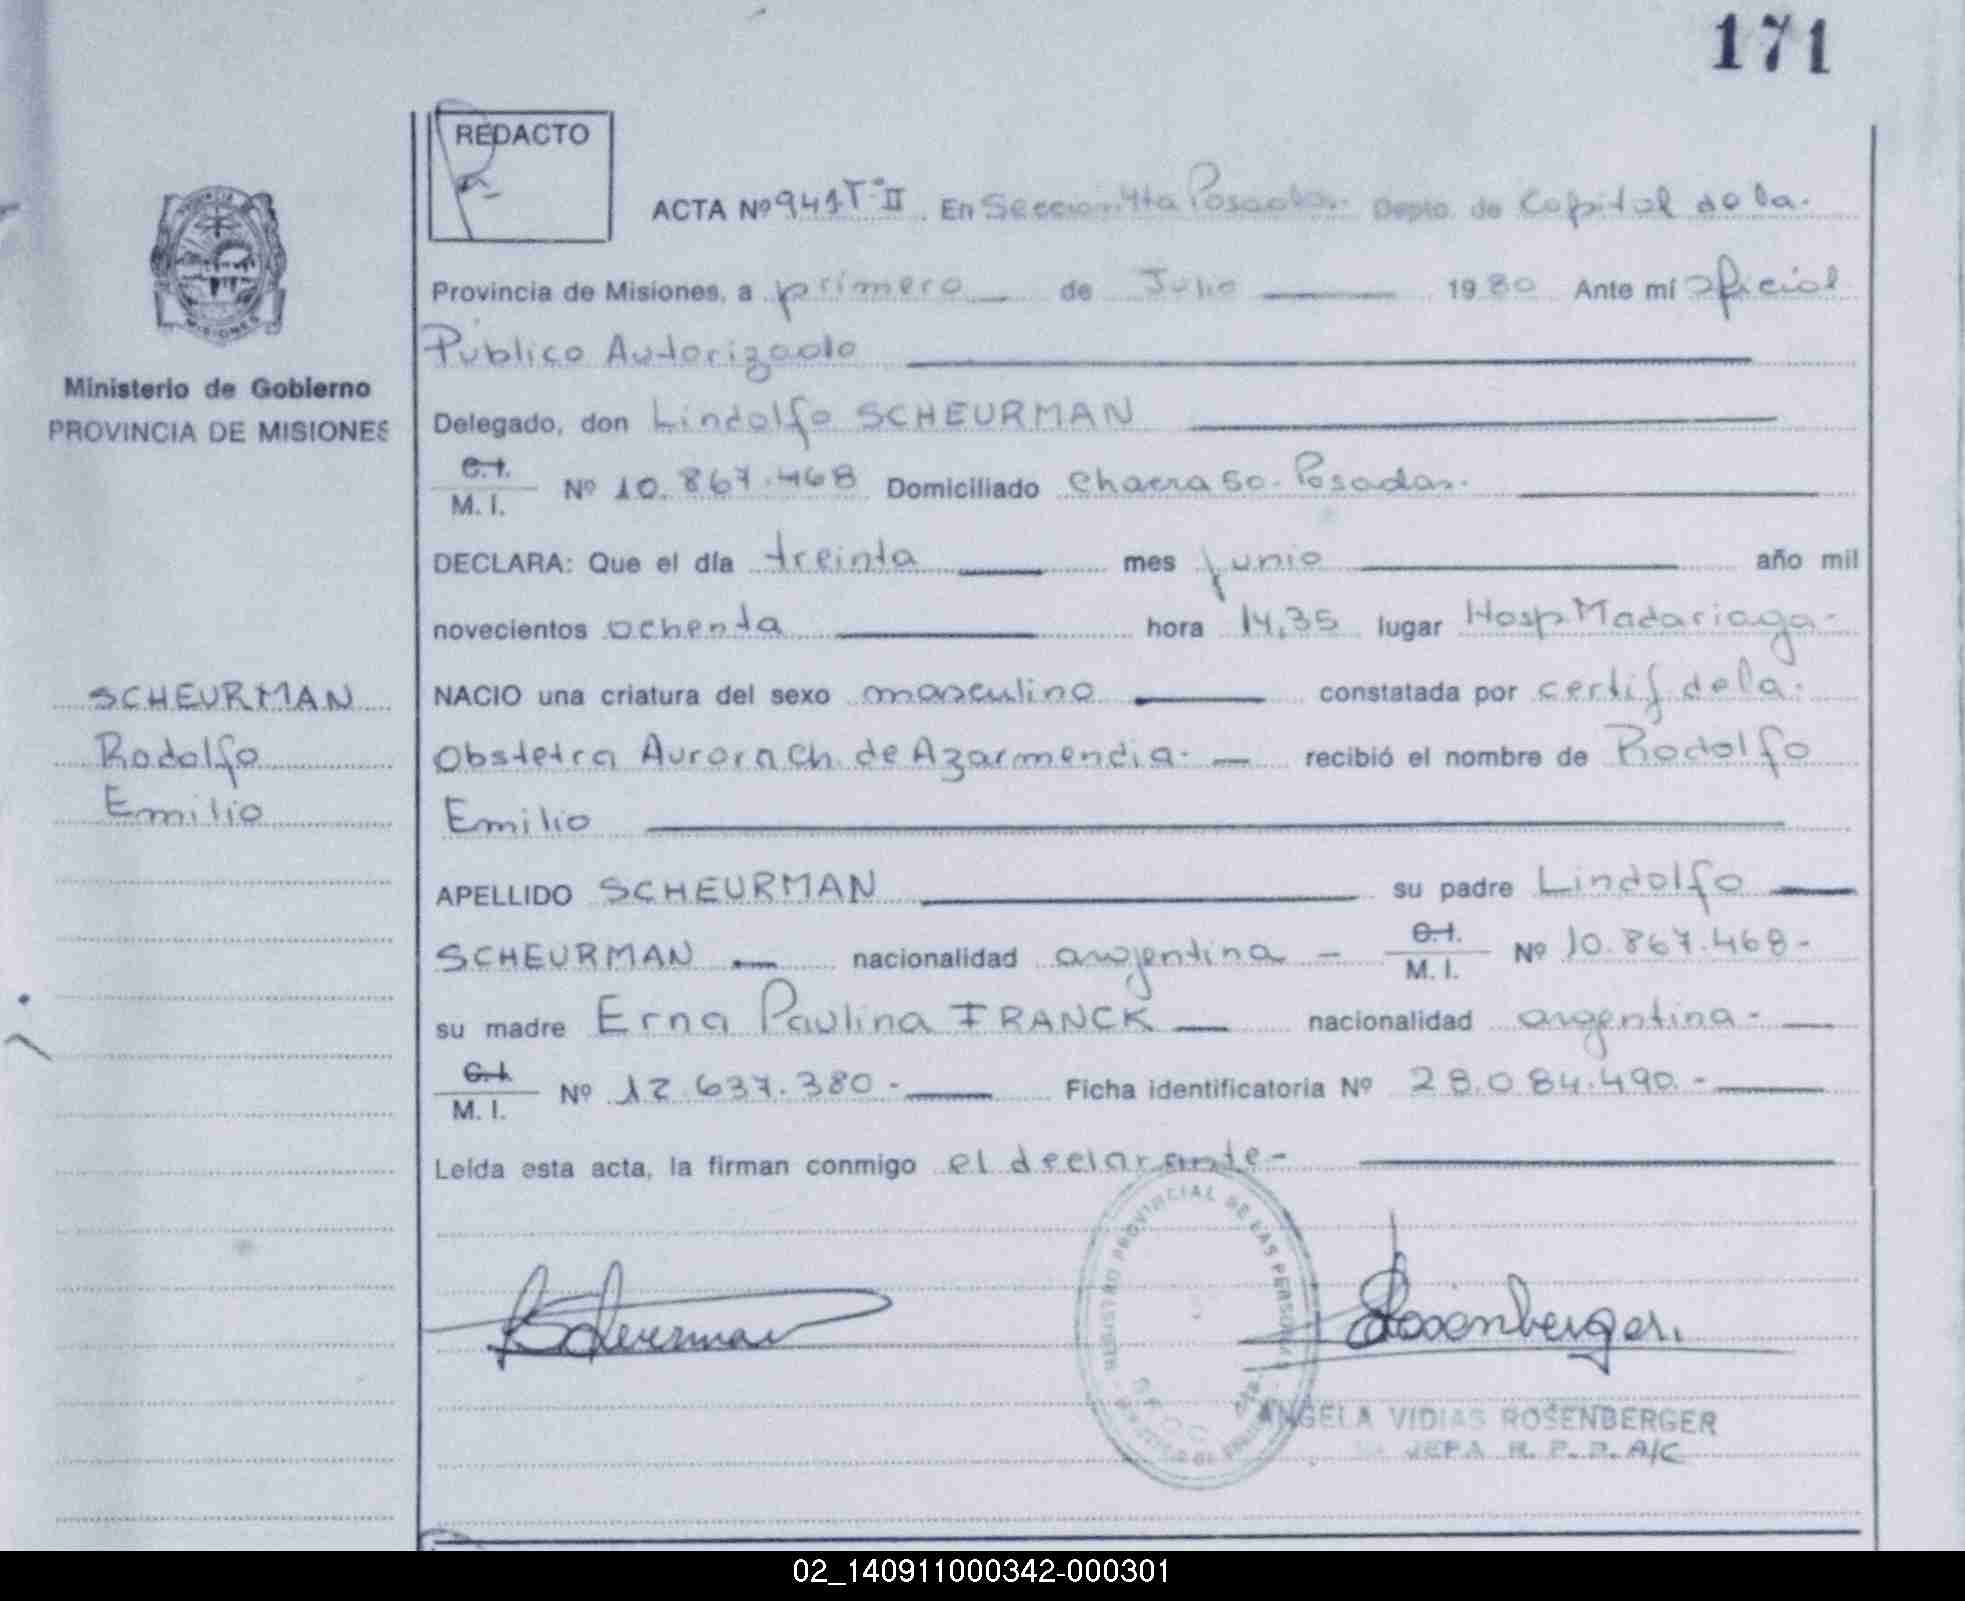 171
REDACTO
ACTA Nº 941 Tº II. En Sección 4ta Posadas. Depto. de Capital de la.
Provincia de Misiones, a primero de Julio 1980 Ante mí oficial
Público Autorizado
Ministerio de Gobierno
PROVINCIA DE MISIONES
Delegado, don Lindolfo SCHEURMAN
C.I.
M. I. Nº 10.867.468 Domiciliado Chacra 50. Posadas.
DECLARA: Que el día treinta mes junio año mil
novecientos ochenta hora 14,35 lugar Hosp Madariaga-
SCHEURMAN
Rodolfo
Emilio
NACIO una criatura del sexo masculino constatada por certif de la.
Obstetra Aurora Ch. de Azarmendia.- recibió el nombre de Rodolfo
Emilio
APELLIDO SCHEURMAN su padre Lindolfo
SCHEURMAN nacionalidad argentina - C.I.
M. I. Nº 10.867.468-
su madre Erna Paulina FRANCK nacionalidad argentina-
C.I.
M. I. Nº 12.637.380- Ficha identificatoria Nº 28.084.490.-
Leída esta acta, la firman conmigo el declarante-
REGISTRO PROVINCIAL DE LAS PERSONAS
Scheurman
Rosenberger.
ANGELA VIDIAS ROSENBERGER
JEFA R. P. P. A/C
02_140911000342-000301